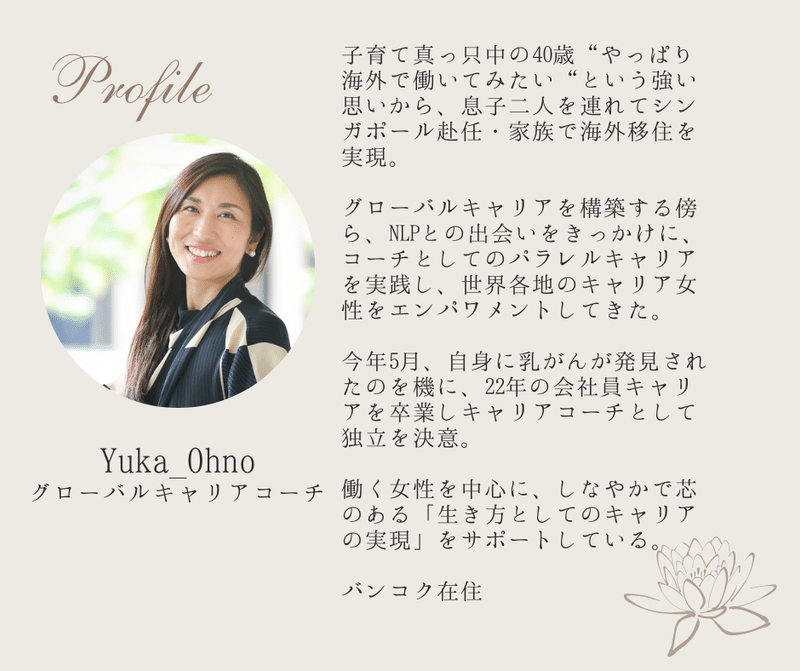 Profile
Yuka_Ohno
グローバルキャリアコーチ
子育て真っ只中の40歳“やっぱり
海外で働いてみたい“という強い
思いから、息子二人を連れてシン
ガポール赴任・家族で海外移住を
実現。
グローバルキャリアを構築する傍
ら、NLPとの出会いをきっかけに、
コーチとしてのパラレルキャリア
を実践し、世界各地のキャリア女
性をエンパワメントしてきた。
今年5月、自身に乳がんが発見され
たのを機に、22年の会社員キャリ
アを卒業しキャリアコーチとして
独立を決意。
働く女性を中心に、しなやかで芯
のある「生き方としてのキャリア
の実現」をサポートしている。
バンコク在住